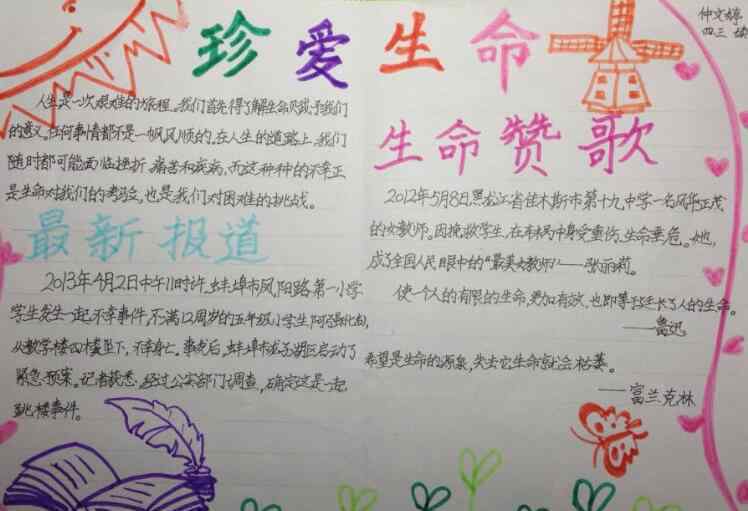 珍爱生命
仲文婷
四三
人生是一次艰难的旅程。我们首先得了解生命赋予我们
的意义。任何事情都不是一帆风顺的,在人生的道路上,我们
随时都可能面临挫折、痛苦和疾病,而这种种的不幸正
是生命对我们的考验,也是我们对困难的挑战。
最新报道
2013年4月2日中午11时许,蚌埠市凤阳路第一小学
学生发生一起不幸事件,不满12周岁的五年级小学生阿
从教学楼四楼坠下,不幸身亡。事发后,蚌埠市龙子湖区启动了
紧急预案。记者获悉,经过公安部门调查,确定这是一起
跳楼事件。
生命赞歌
2012年5月8日,黑龙江省佳木斯市第十九中学一名风华正茂
的女教师。因挽救学生,在车祸中身受重伤,生命垂危。她,
成了全国人民眼中的“最美女教师”!——张丽莉。
使一个人的有限的生命,更加有效,也即等于延长了人的生命。
——鲁迅
希望是生命的源泉,失去它生命就会枯萎。
——富兰克林